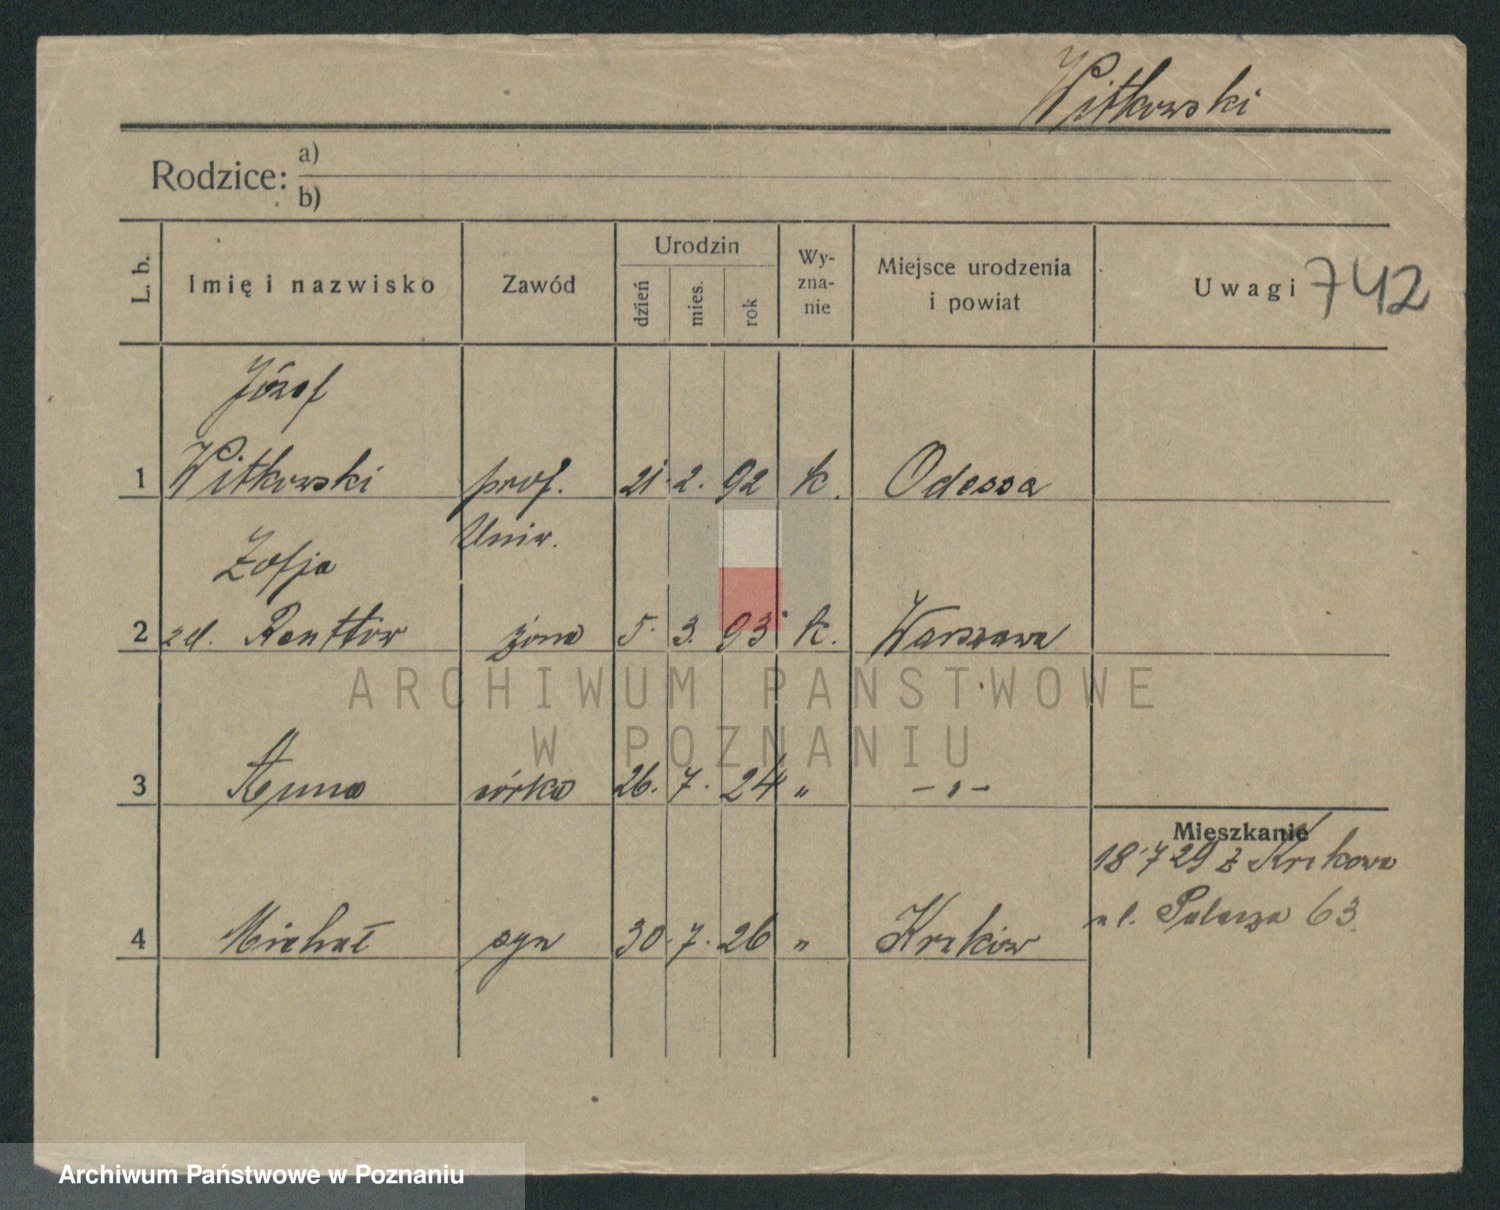 Witkowski
Rodzice: a)
b)
L. b.
Imię i nazwisko
Zawód
Urodzin
dzień
mies.
rok
Wy-
zna-
nie
Miejsce urodzenia
i powiat
Uwagi 742
Józef
1 Witkowski prof. 21. 2. 92 k. Odessa
Uniw.
Zofja
2 zd. żona 5. 3. 93 k. Warszawa
3 Anna córka 26. 7. 24 „ — „ —
Mieszkanie
18 7 29 z Krakowa
4 Michał syn 30. 7. 26 „ Kraków
ul. 63.
ARCHIWUM PAŃSTWOWE
W POZNANIU
Archiwum Państwowe w Poznaniu